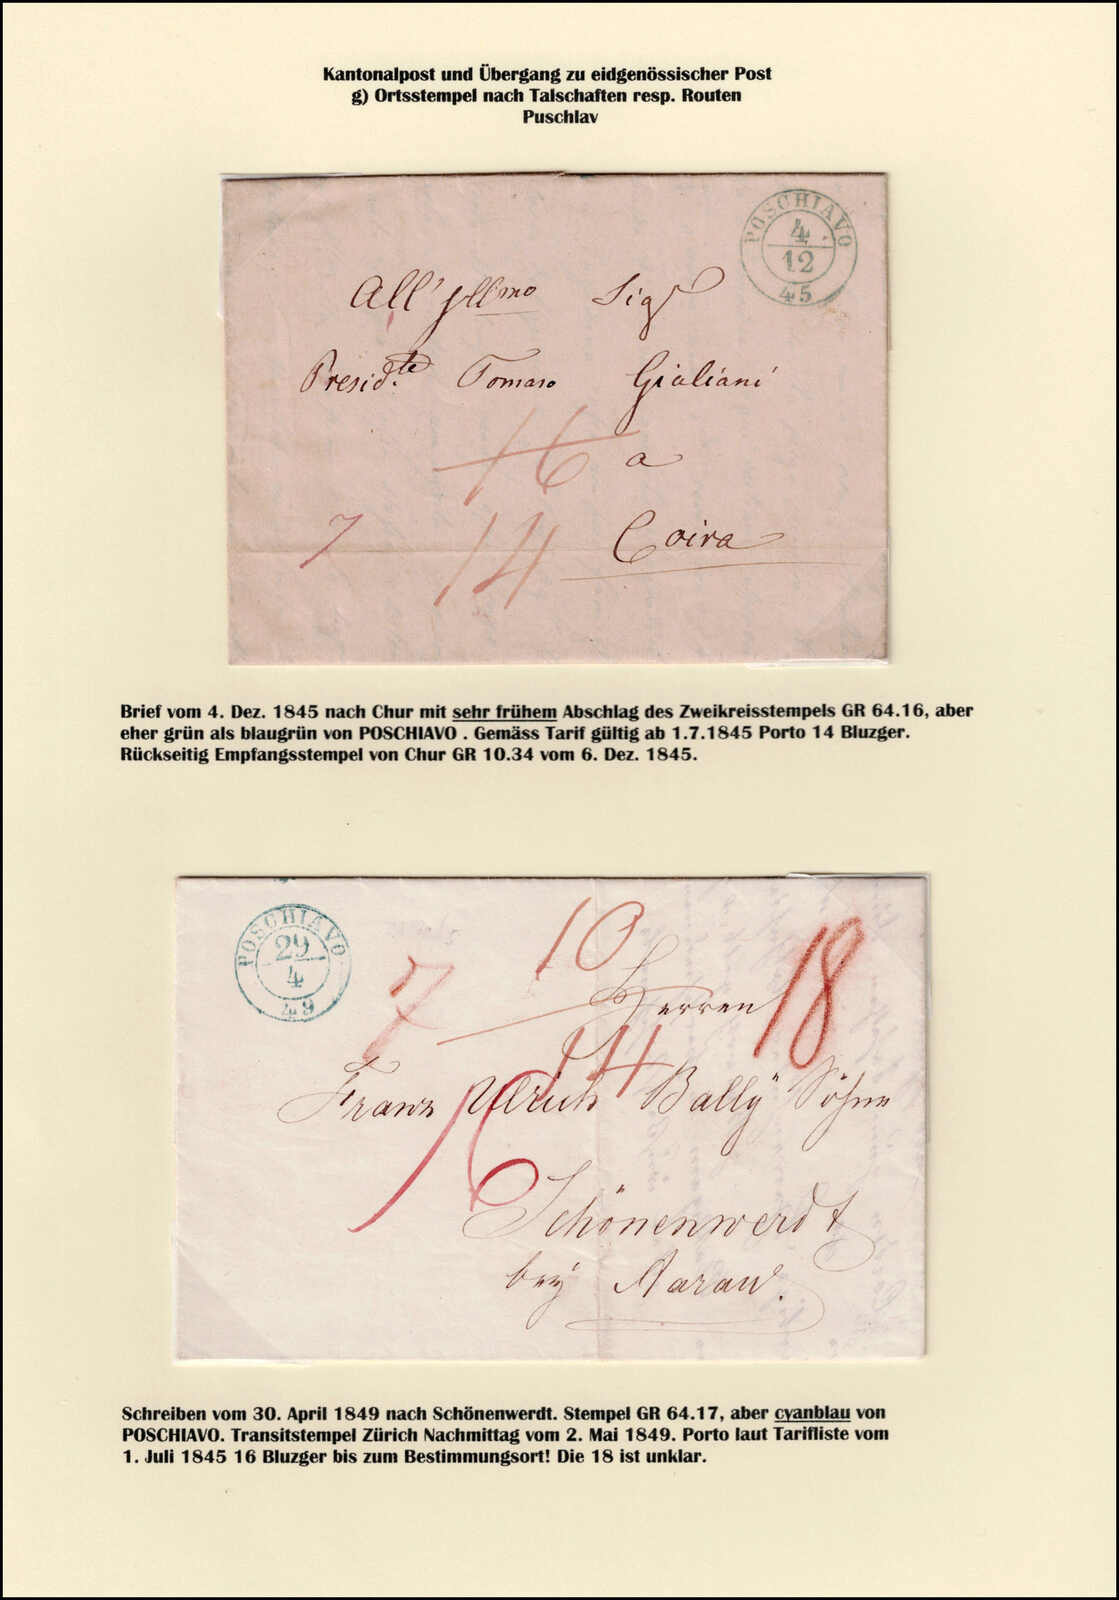 Kantonalpost und Übergang zu eidgenössischer Post
g) Ortsstempel nach Talschaften resp. Routen
Puschlav
POSCHIAVO
4
12
45
All' Illmo Sigr
Presidte Tomaso Giuliani
16 a
7 14 Coira
Brief vom 4. Dez. 1845 nach Chur mit sehr frühem Abschlag des Zweikreisstempels GR 64.16, aber
eher grün als blaugrün von POSCHIAVO . Gemäss Tarif gültig ab 1.7.1845 Porto 14 Bluzger.
Rückseitig Empfangsstempel von Chur GR 10.34 vom 6. Dez. 1845.
POSCHIAVO
29
4
49
10
7 Herren 18
14
Franz Ulrich Bally Söhne
16
Schönenwerdt
bey Aarau.
Schreiben vom 30. April 1849 nach Schönenwerdt. Stempel GR 64.17, aber cyanblau von
POSCHIAVO. Transitstempel Zürich Nachmittag vom 2. Mai 1849. Porto laut Tarifliste vom
1. Juli 1845 16 Bluzger bis zum Bestimmungsort! Die 18 ist unklar.